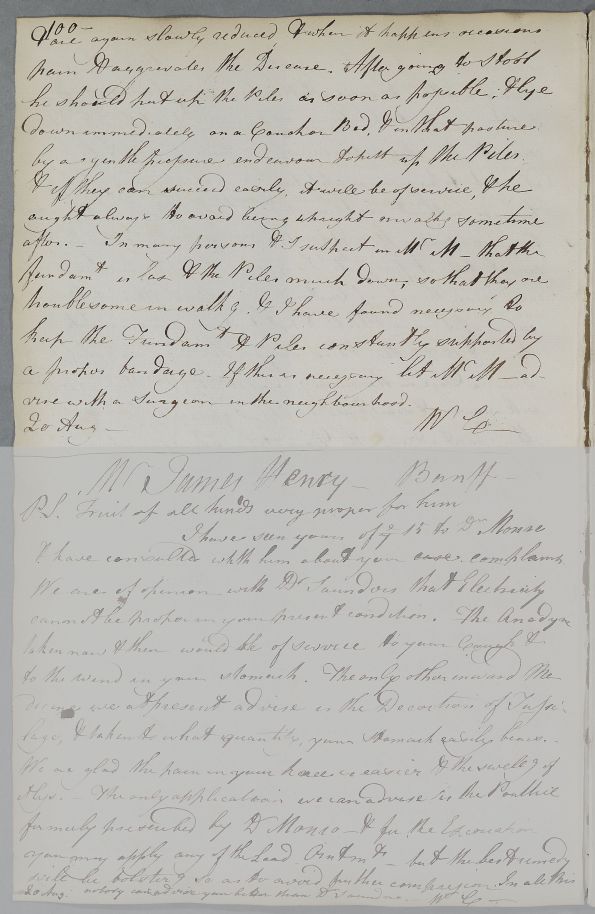 100
& are again slowly reduced & when it happens occasions
pain & aggravates the Disease. After going to stool
he should put up the Piles as soon as possible, & lye
down immediately on a Couch or Bed, & in that posture
by a gentle pressure endeavour to putt up the Piles.
& if they can succeed easily, it will be of service, & he
ought always to avoid being upright or walkg sometime
after. - In many persons & I suspect in Mr M- that the
fundamt is lax & the Piles much down, so that they are
troublesome in walkg. & I have found necessary to
keep the Fundamt & Piles constantly supported by
a proper bandage. If this is necessary let Mr M- ad-
vise with a Surgeon in the neighbourhood.
20 Aug - W C
Mr James Henry - Banff -
P.S. Fruit of all kinds very proper for him
I have seen yours of ye 15 to Dr Monro
& have consulted with him about your case. complaint
We are of opinion with Dr Saunders that Electricity
cannot be proper in your present condition. The Anodyne
taken now & then would be of service to your Cough &
to the wind in your stomach. The only other inward Me-
dicine we at present advise is the Decoction of Tussi-
lago, & taken to what quantity, your stomach easily bears. -
We are glad the pain in your knee is easier & the swellg of
Hys. - The only application we can advise is the Poultice
formerly prescribed by Dr Monro - & for the Excoriation
you may apply any of the Lead Ointmts - but the best remedy
will be bolsterg so as to avoid further compression In all this
20 Aug. nobody can advise you better than Dr Saunders. - W C -